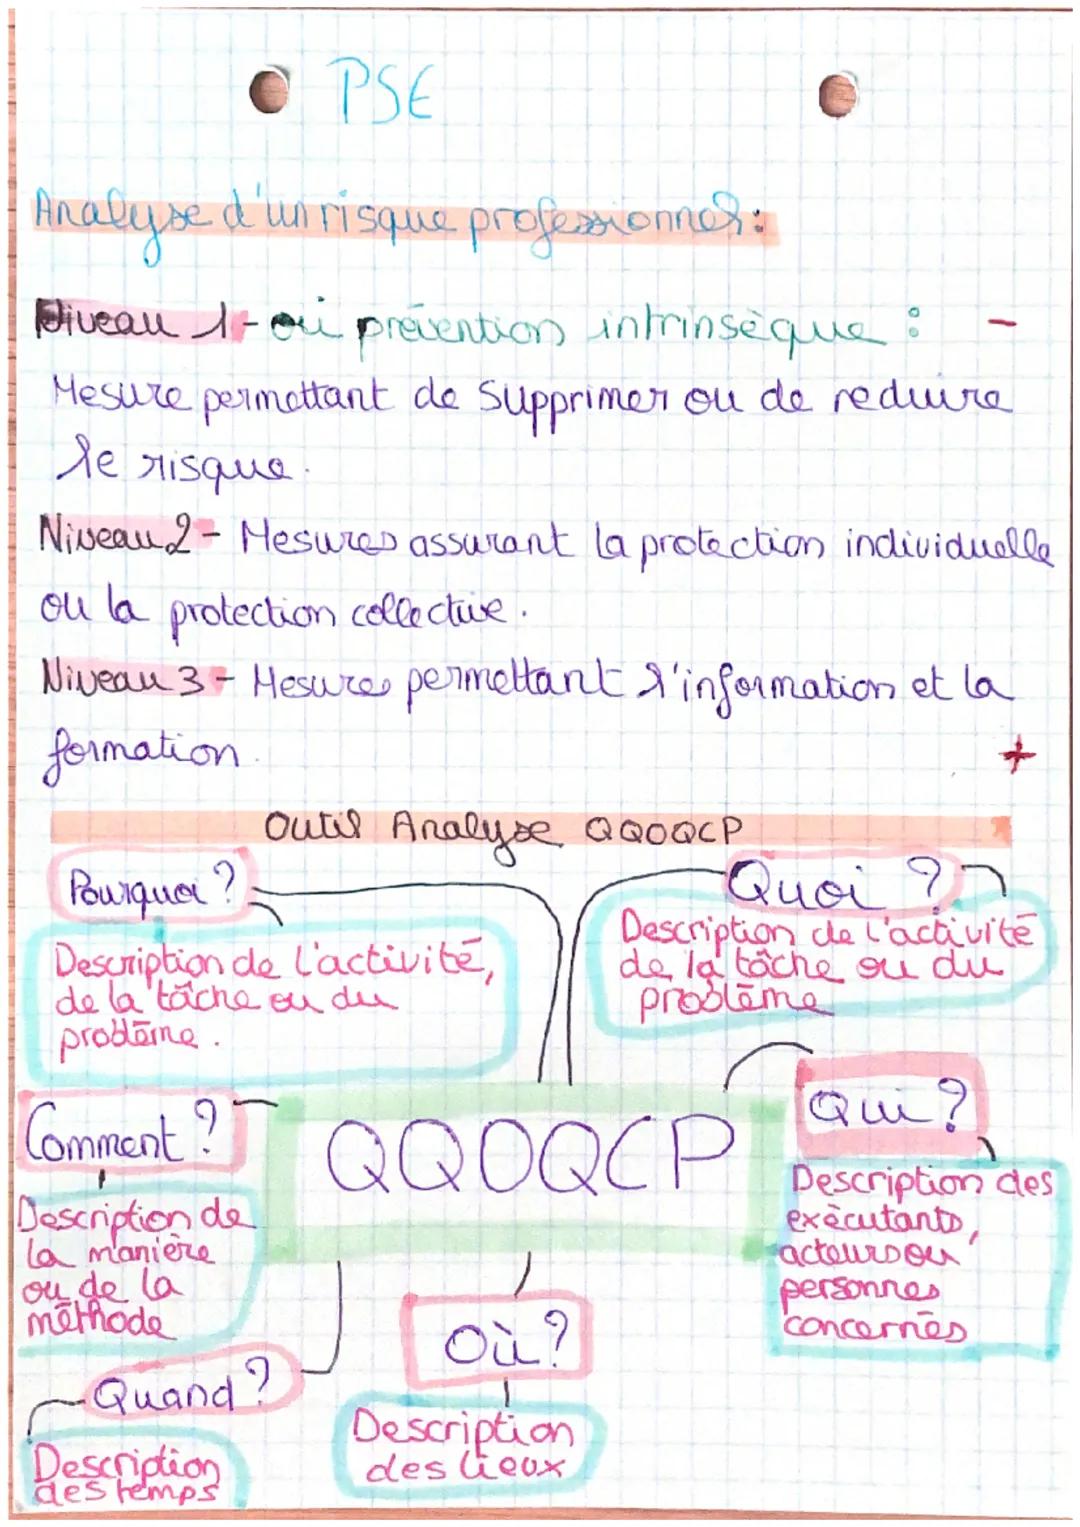 PSE
Analyse d'un risque professionnel :
Niveau 1 - ou prévention intrinsèque : -
Mesure permettant de Supprimer ou de reduire
le risque.
Niveau 2 - Mesures assurant la protection individuelle
ou la protection collective.
Niveau 3 - Mesures permettant l'information et la
formation.
+
Outil Analyse QQOQCP
Pourquoi ?
Description de l'activité,
de la tâche ou du
problème.
Quoi ?
Description de l'activité
de la tâche ou du
problème
Comment ?
Description de
la manière
ou de la
méthode
QQOQCP
Qui ?
Description des
exécutants,
acteurs ou
personnes
concernés
Quand ?
Description
des temps
Où ?
Description
des lieux